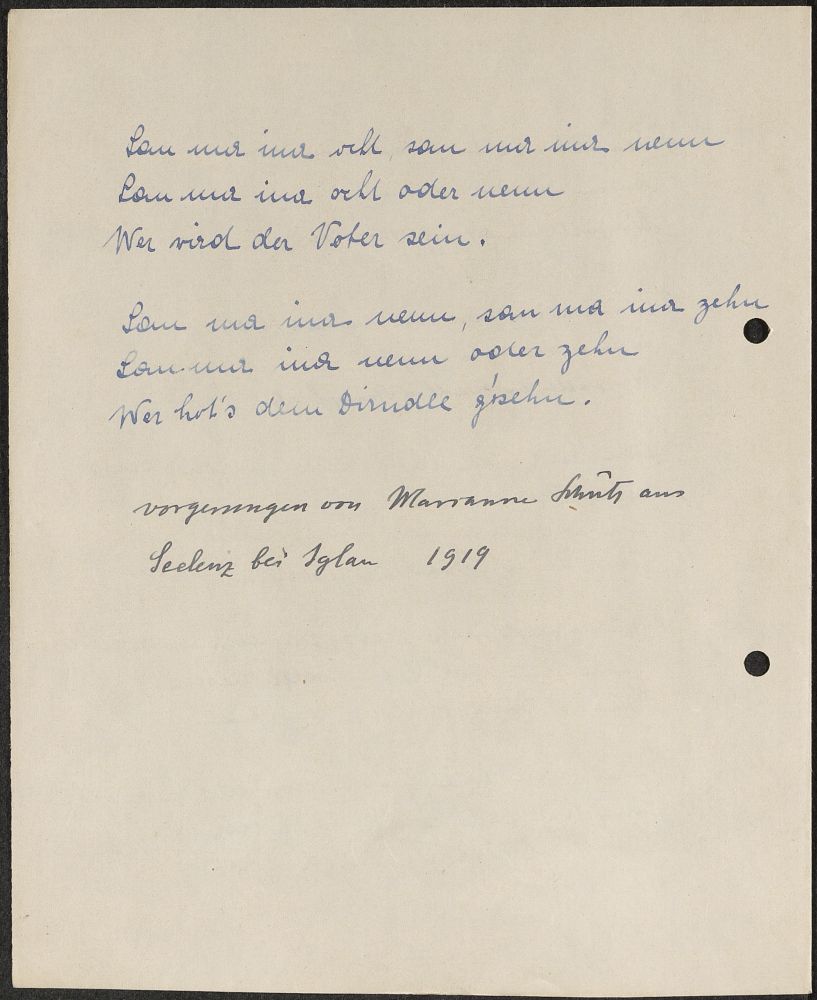 San ma ina ocht, san ma ina nenn
San ma ina ocht oder nenn
Wer wird der Voter sein.
San ma ina nenn, san ma ina zehn
San ma ina nenn oder zehn
Wer hot's dem Dirndle g'sehn.
vorgesungen von Marianne Schütz aus
Seelenz bei Iglau 1919